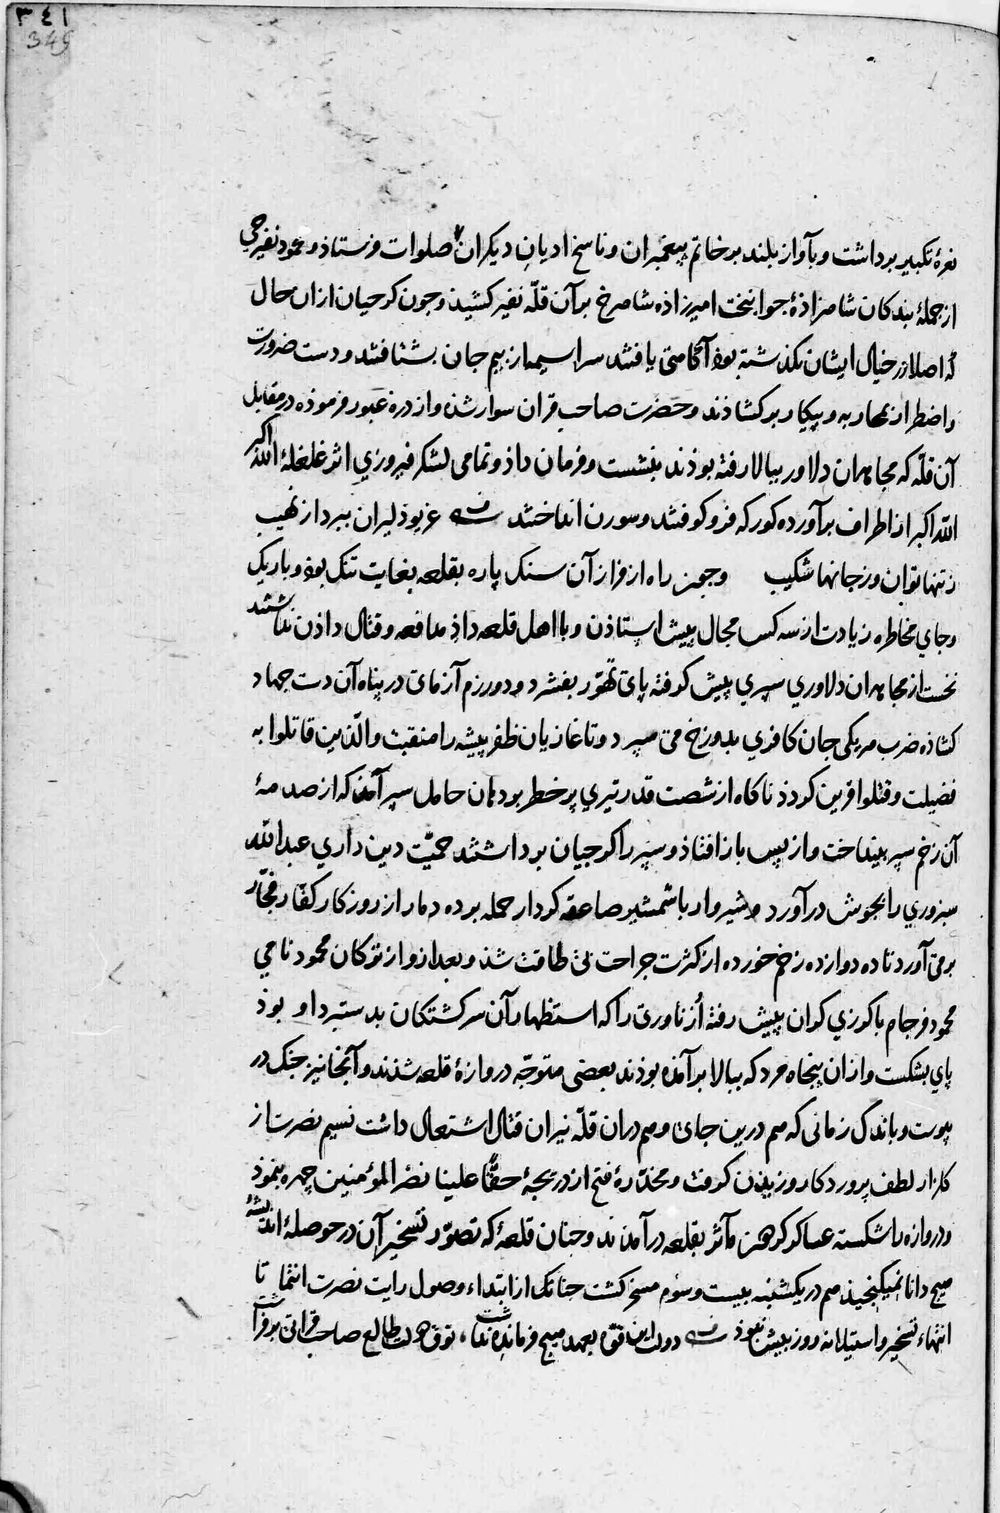 ٣٤١
345
نعرهٔ تکبیر برداشت و بآواز بلند بر خاتم پیغمبران و ناسخ ادیان دیکران صلوات فرستاذ و محمود نفیرجی
از جملهٔ بندکان شاهزاذهٔ جوانبخت امیرزاذه شاهرخ بر آن قلّه نفیر کشیذ و جون کرجیان ازان حال
که اصلا در خیال ایشان نکذشته بوذ آکاهی یافتند سراسیمه از بیم جان بشتافتند و دست ضرورت
و اضطرار بمحاربه و پیکار برکشاذند و حضرت صاحب قران سوار شذ و از دره عبور فرموذه در مقابل
آن قلّه که مجاهدان دلاور ببالا رفته بوذند بنشست و فرمان داذ و تمامی لشکر فیروزی اثر غلغلهٔ الله اکبر
الله اکبر از اطراف برآورده کورکه فرو کوفتند و سورن انداختند غریو دلیران ببرد از نهیب
ز تنها توان و ز جانها شکیب و جون راه از فراز آن سنک پاره بقلعه بغایت تنک بوذ و باریک
و جای مخاطره زیادت از سه کس مجال پیش ایستاذن و با اهل قلعه داذ مدافعه و قتال داذن نداشتند
نخست از مجاهدان دلاوری سپری پیش کرفته پای تهوّر بفشرد و دو رزم آزمای در پناه آن دست جهاد
کشاذه ضرب هر یکی جان کافری بدوزخ می سپرد و تا غازیان ظفر پیشه را منقبت والّذین قاتلوا به
فضیلت و قتلوا قرین کردذ ناکاه از شست قدر تیری پر خطر بر دهان حامل سپر آمذ که از صدمهٔ
آن زخم سپر بینداخت و از پس باز افتاذ و سپر را کرجیان برداشتند حمیّت دین داری عبدالله
سبزوری را بجوش درآورد و شیروار با شمشیر صاعقه کردار حمله برده دمار از روزکار کفّار فجّار
برمی آورد تا ده دوازده زخم خورده از کثرت جراحت بی طاقت شذ و بعد ازو از ترکان محمود نامی
محمود فرجام با کرزی کران پیش رفته اُزناوری را که استظهار آن سرکشتکان بدستبرد او بوذ
پای بشکست و ازان پنجاه مرد که ببالا برآمذه بوذند بعضی متوجّه دروازهٔ قلعه شذند و آنجا نیز جنک در
پیوست و باندک زمانی که هم درین جای و هم دران قلّه نیران قتال اشتعال داشت نسیم نصرت از
کلزار لطف پروردکار وزیذن کرفت و مخدّرهٔ فتح از دریجهٔ حقًّا علینا نصر المؤمنین چهره بنموذ
و دروازه را شکسته عساکر کردون مآثر بقلعه درآمذند و جنان قلعهٔ که تصوّر تسخیر آن در حوصلهٔ اندیشهٔ
هیچ دانا نمیکنجیذ هم در یکشنبه بیست و سوم مسخر کشت جنانک از ابتداء وصول رایت نصرت انتما تا
انتهاء تسخیر و استیلا نه روز بیش نبوذ دولت این قوّه بعهد هیچ فرمانده نداشت